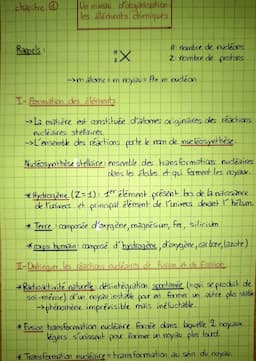 chapitre ①
Un niveau d'organisation :
les éléments chimiques
Rappels :
A
X
Z
A: nombre de nucléons
Z: nombre de protons
→ m atome ≈ m noyau = A × m nucléon
I - Formation des éléments
→ La matière est constituée d'atomes originaires des réactions
nucléaires stellaires.
→ L'ensemble des réactions porte le nom de nucléosynthèse.
Nucléosynthèse stellaire : ensemble des transformations nucléaires
dans les étoiles et qui forment les noyaux.
* Hydrogène (Z=1) : 1er élément présent lors de la naissance
de l'univers et principal élément de l'univers devant l'hélium.
* Terre : composée d'oxygène, magnésium, fer, silicium
* corps humain : composé d'hydrogène, d'oxygène, carbone, (azote)
II - Distinguer les réactions nucléaires de fusion et de fission
* Radioactivité naturelle : désintégration spontanée (= qui se produit de
soi-même) d'un noyau instable pour en former un autre plus stable
→ phénomène imprévisible mais inéluctable.
* Fusion : transformation nucléaire forcée dans laquelle 2 noyaux
légers s'unissent pour former un noyau plus lourd.
* Transformation nucléaire = transformation au sein du noyau.